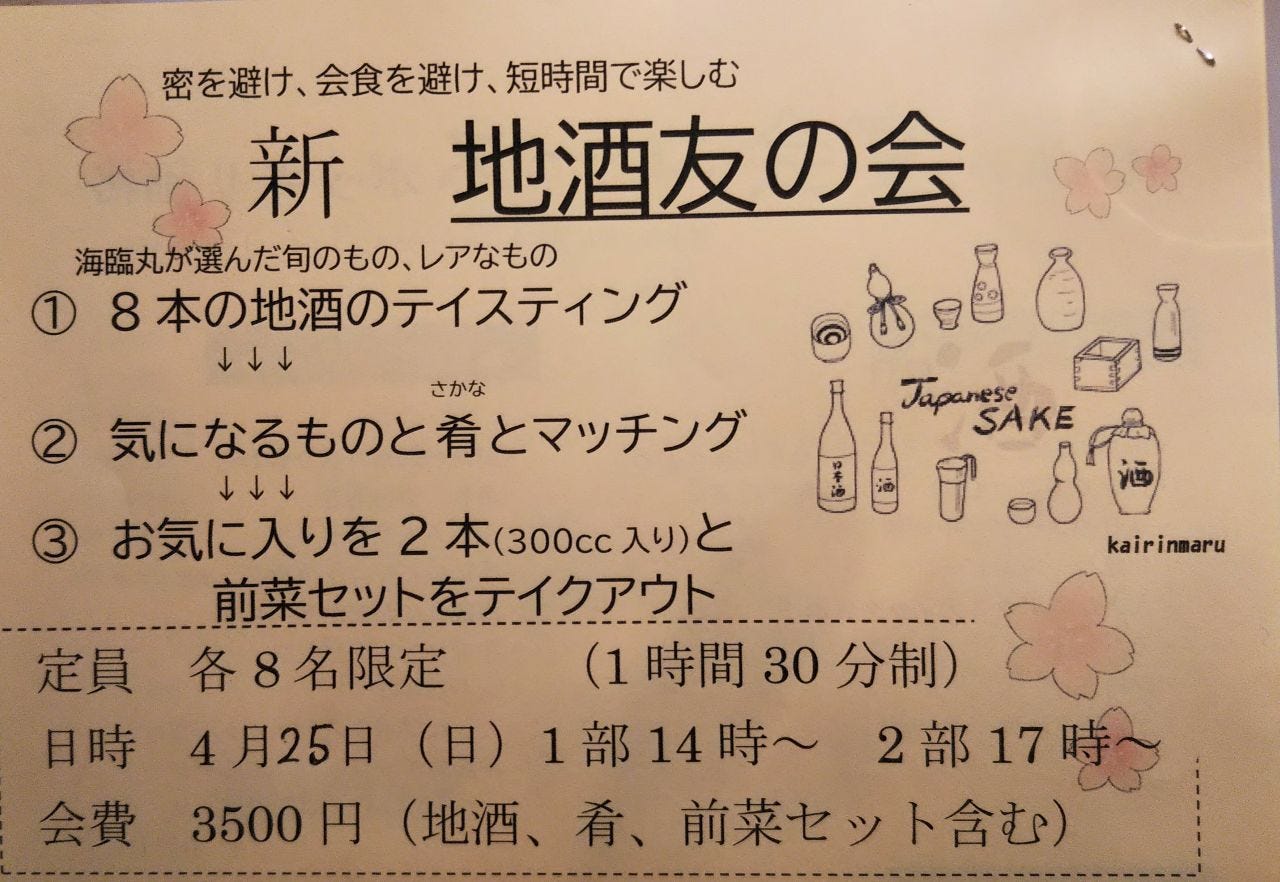 密を避け、会食を避け、短時間で楽しむ
新 地酒友の会
海臨丸が選んだ旬のもの、レアなもの
① 8本の地酒のテイスティング
↓↓↓
さかな
② 気になるものと肴とマッチング
↓↓↓
③ お気に入りを2本(300cc入り)と
前菜セットをテイクアウト
Japanese
SAKE
日本酒
酒
酒
kairinmaru
定員 各8名限定 (1時間30分制)
日時 4月25日(日)1部14時～ 2部17時～
会費 3500円(地酒、肴、前菜セット含む)